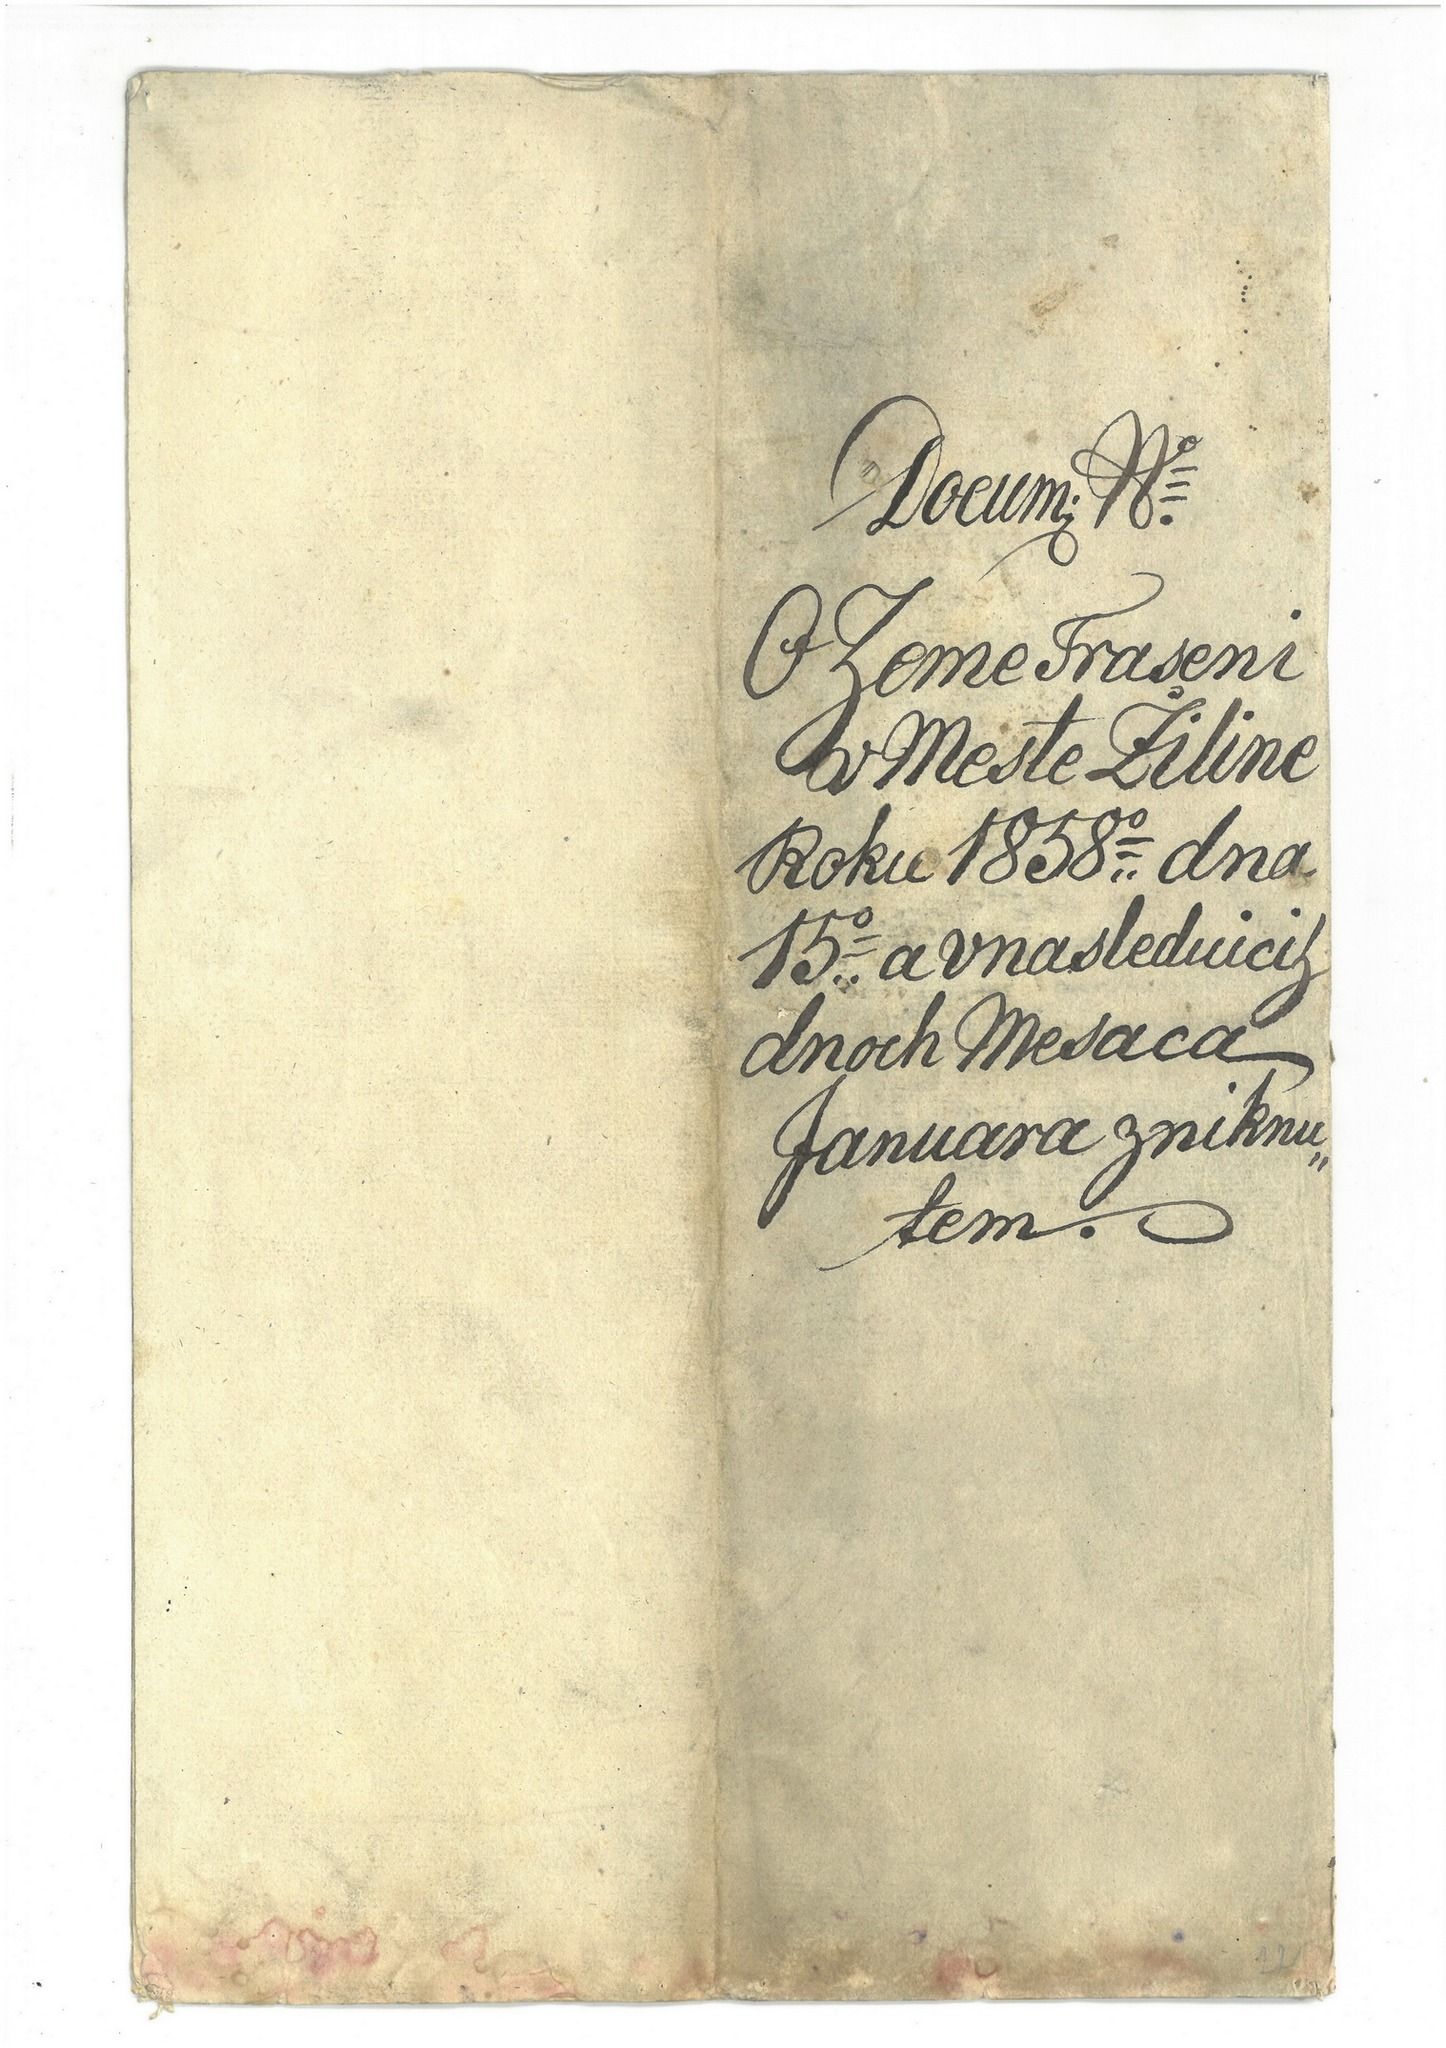 Docum; No
O Zeme Traseni
v Meste Žiline
Roku 1858o dna
15o a vnasleduiciz
dnoch Mesaca
Januara zniknu„
tem.